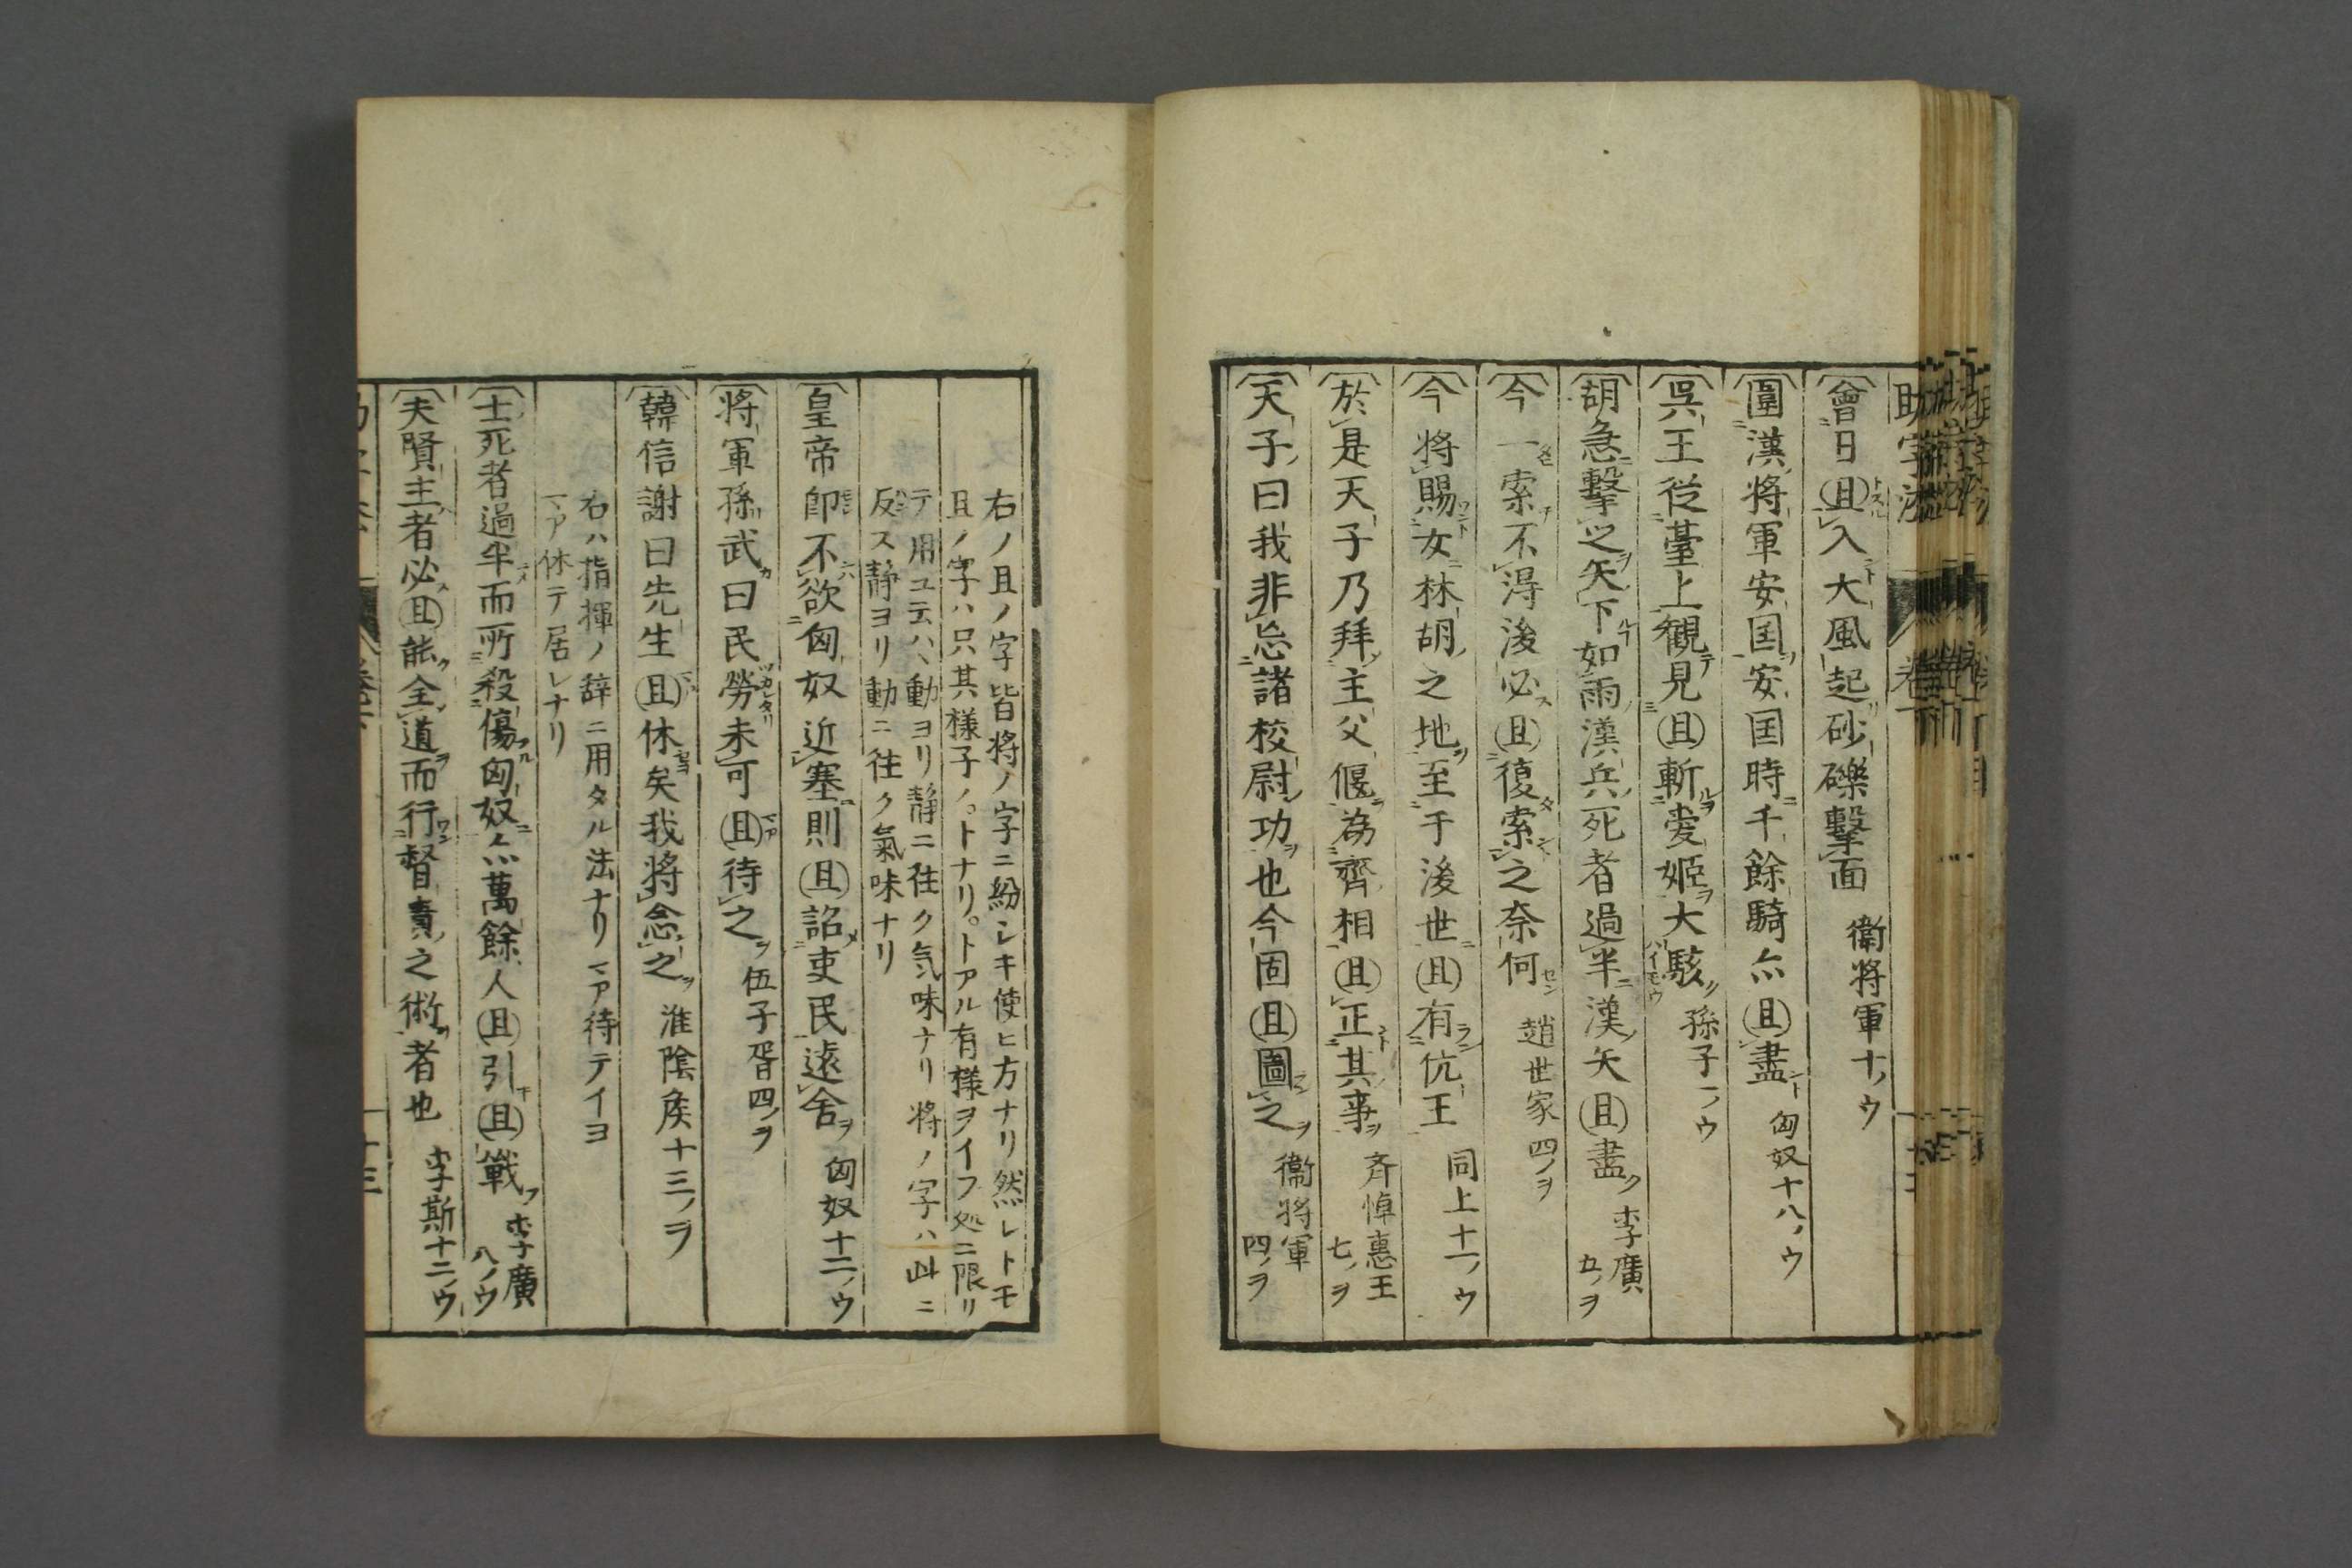 會日且入大風起砂礫擊面 衛將軍十ノウ
圍漢將軍安国安国時千餘騎亦且盡 匈奴十八ノウ
吳王從臺上觀見且斬愛姬大駭 孫子一ノウ
胡急擊之矢下如雨漢兵死者過半漢矢且盡 李廣五ノヲ
今一索不得後必且復索之奈何 趙世家四ノヲ
今將賜女林胡之地至于後世且有伉王 同上十一ノウ
於是天子乃拜主父偃為齊相且正其事 斉悼惠王七ノヲ
天子曰我非忘諸校尉功也今固且圖之 衞將軍四ノヲ
右ノ且ノ字皆将ノ字ニ紛レキ使ヒ方ナリ然レトモ
且ノ字ハ只其様子ノ。トナリ。トアル有様ヲイフ処ニ限リ
テ用ユ云ハヽ動ヨリ静ニ往ク気味ナリ将ノ字ハ此ニ
反ス静ヨリ動ニ往ク氣味ナリ
皇帝即不欲匈奴近塞則且詔吏民遠舍 匈奴十二ノウ
將軍孫武曰民勞未可且待之 伍子胥四ノヲ
韓信謝曰先生且休矣我將念之 淮陰矦十三ノヲ
右ハ指揮ノ辞ニ用タル法ナリマア待テイヨ
マア休テ居レナリ
士死者過半而所殺傷匈奴亦萬餘人且引且戰 李廣八ノウ
夫賢主者必且能全道而行督責之術者也 李斯十二ノウ